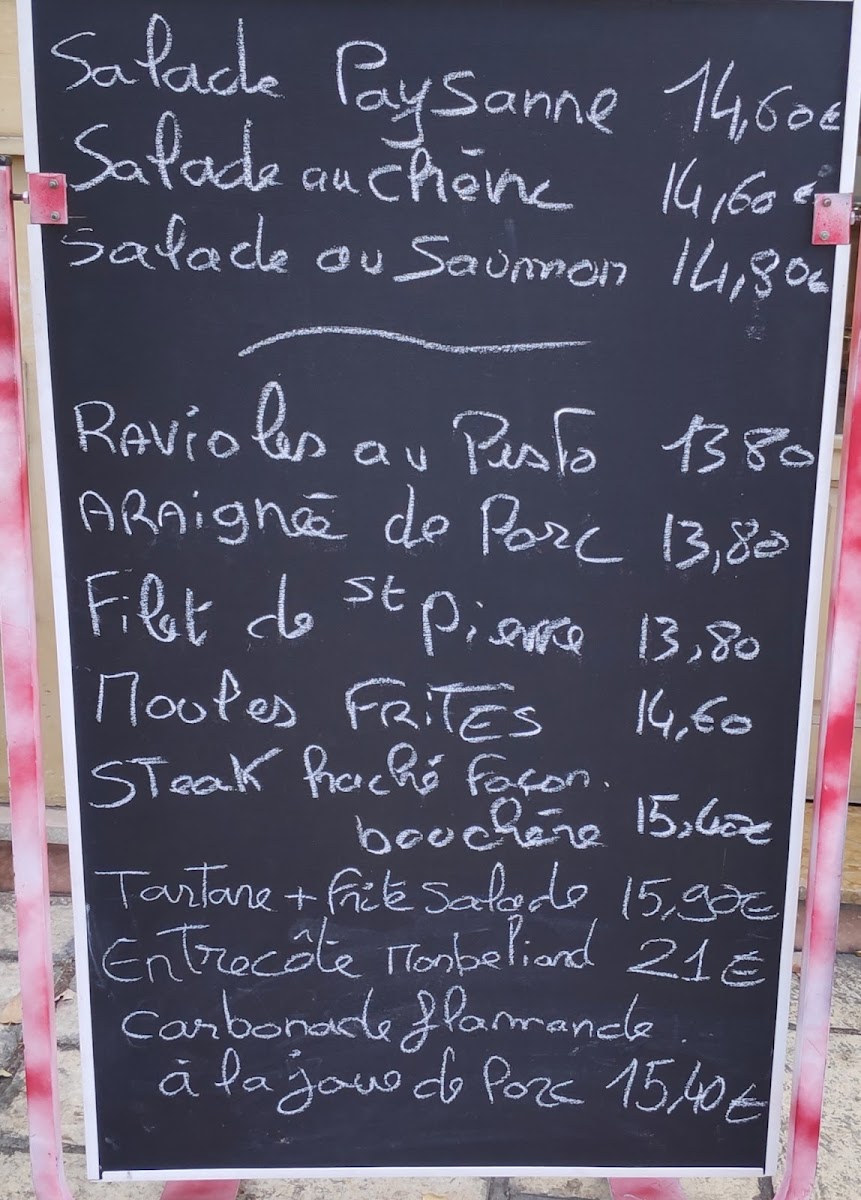 Salade Paysanne 14,60€
Salade au chèvre 14,60€
Salade au Saumon 14,80€
RAVioles au Pesto 13 80
ARAignée de Porc 13,80
Filet de St Pierre 13,80
Moules FRiTES 14,60
STeak haché façon.
bouchère 15,40€
Tartare + Frite Salade 15,90€
Entrecôte Monbeliard 21€
Carbonade flamande.
à la joue de Porc 15,40€